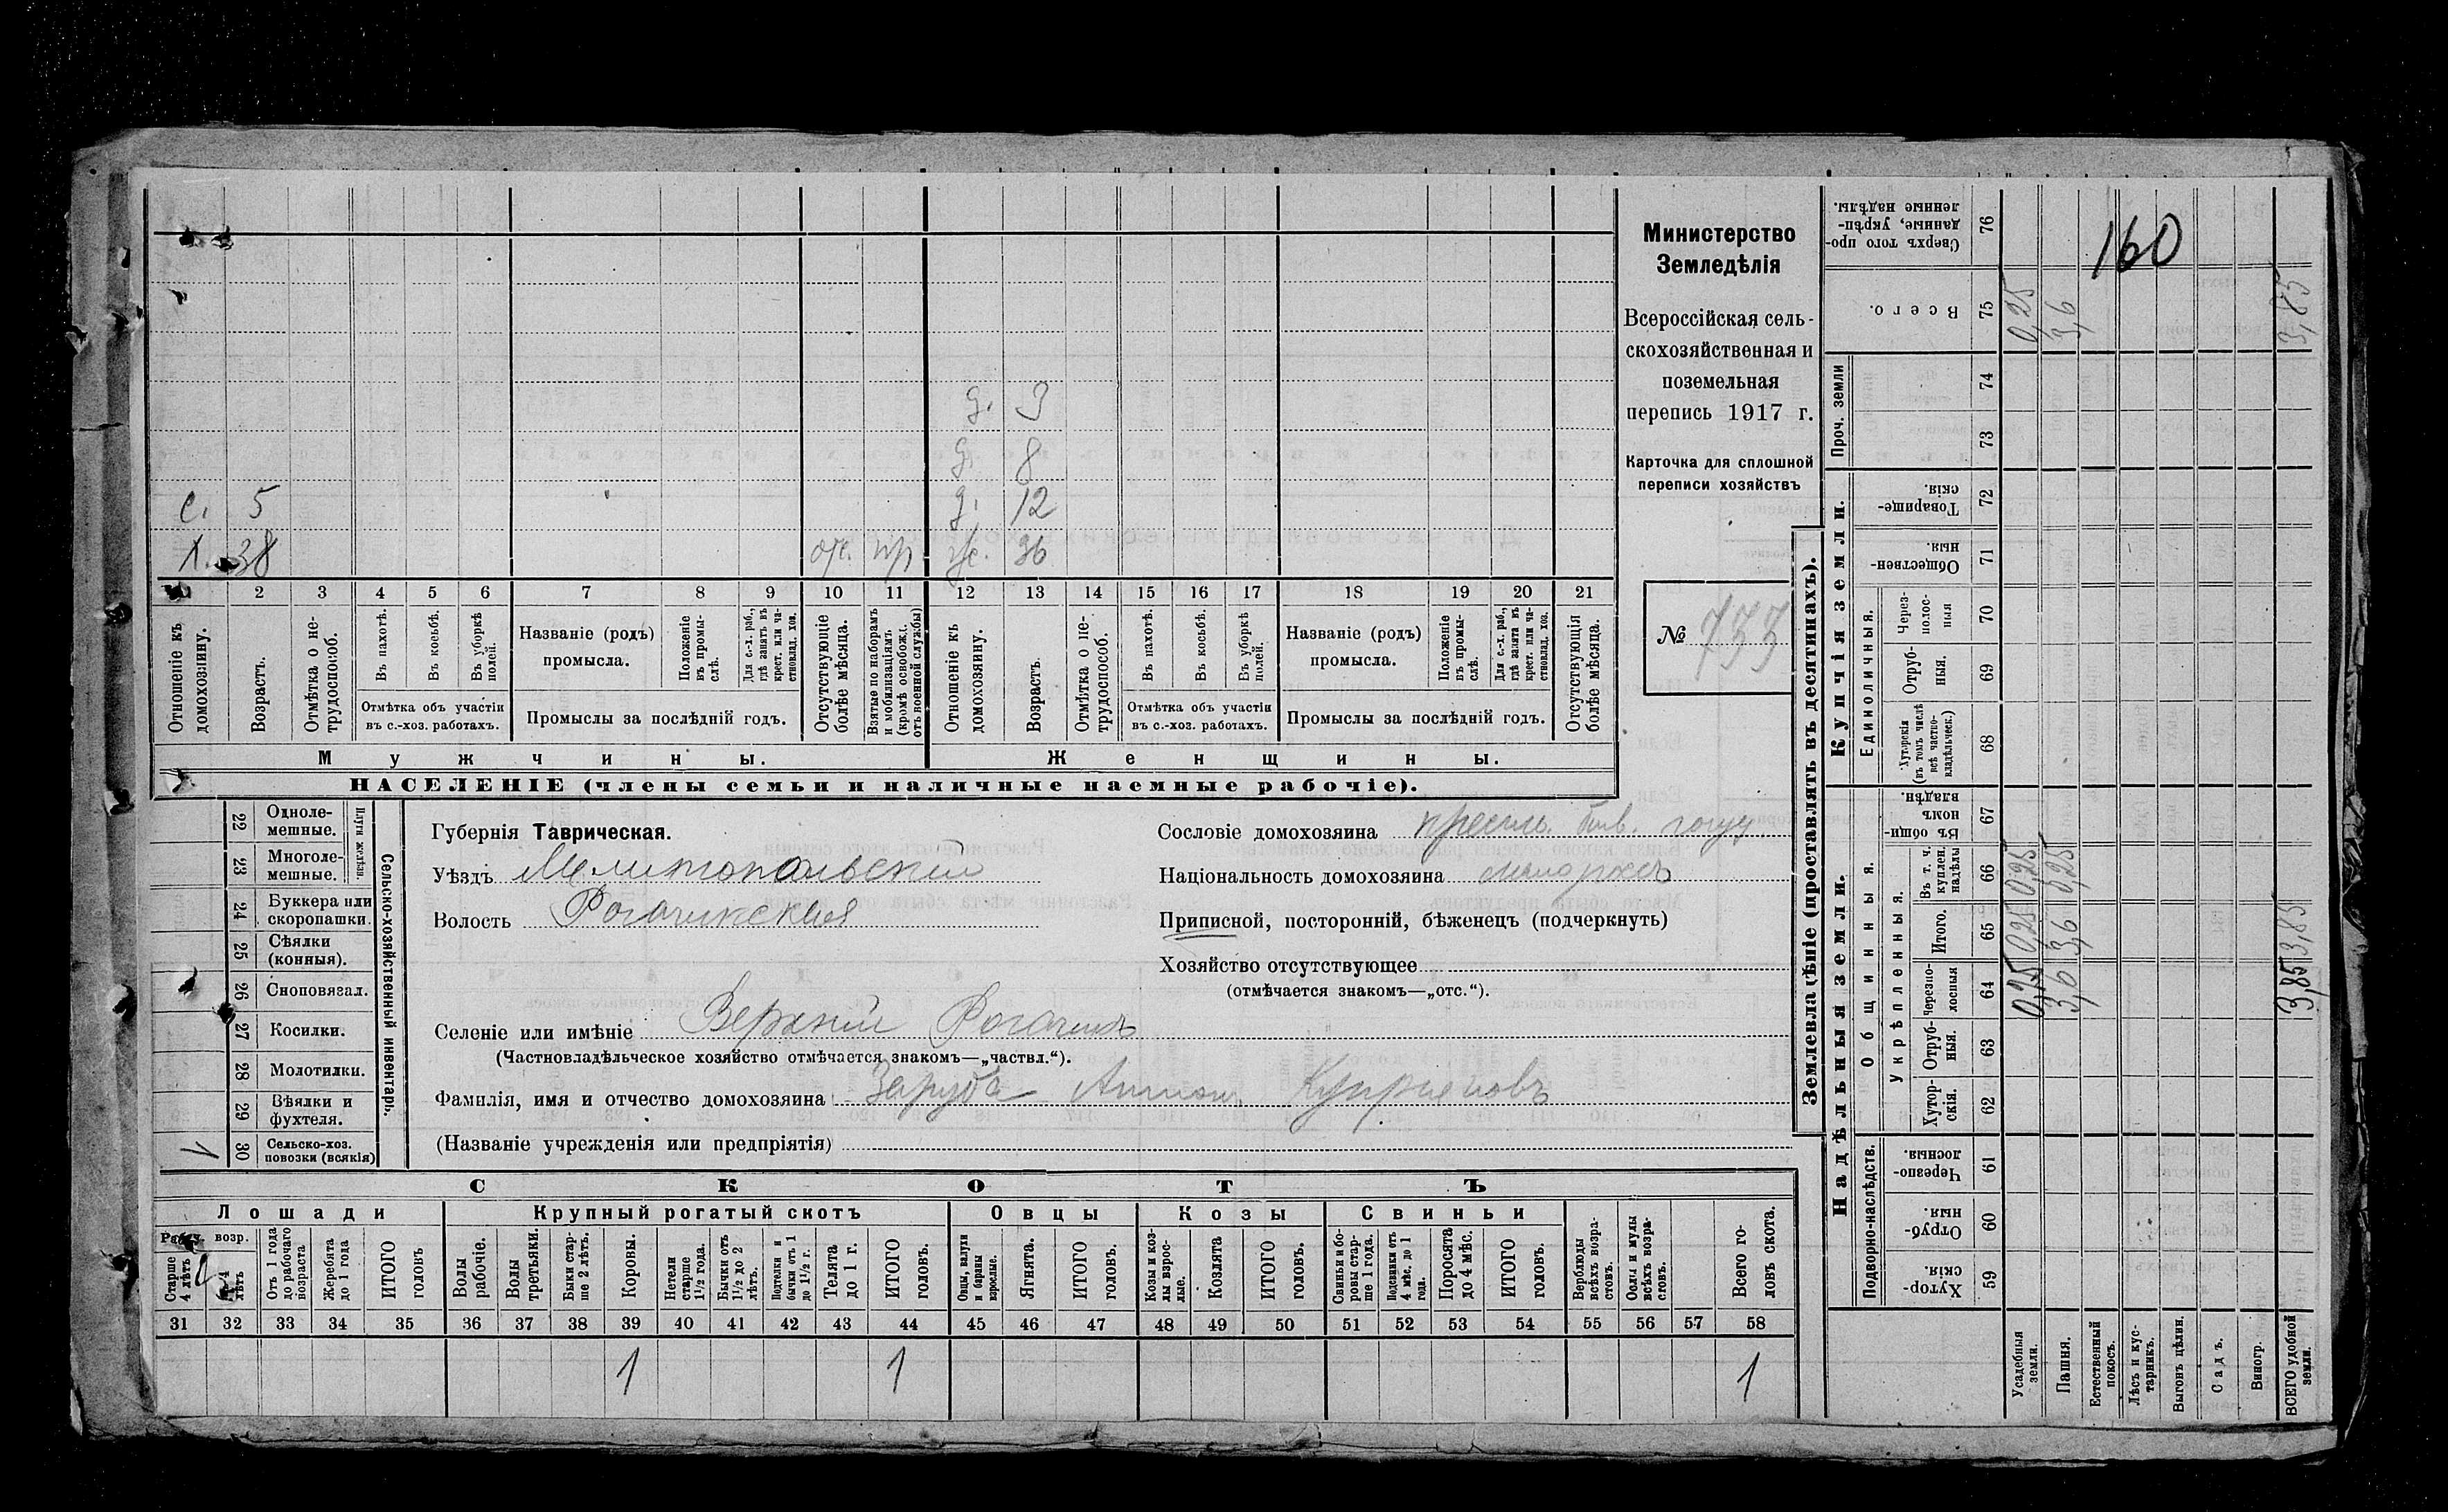 Министерство
Земледѣлія
Всероссійская сель-
скохозяйственная и
поземельная
перепись 1917 г.
Карточка для сплошной
переписи хозяйствъ
№ 733
160
д. 3
д. 8
с. 5 д. 12
х. 38 отс. пр ж. 36
1 2 3 4 5 6 7 8 9 10 11 12 13 14 15 16 17 18 19 20 21
Отношеніе къ домохозяину.
Возрастъ.
Отмѣтка о не-трудоспособ.
Въ пахотѣ.
Въ косьбѣ.
Въ уборкѣ полей.
Отмѣтка объ участіи
въ с.-хоз. работахъ.
Названіе (родъ)
промысла.
Положеніе въ промы-слѣ.
Для с.-х. раб., гдѣ занятъ въ крест. или ча-стновлад. хоз.
Промыслы за послѣдній годъ.
Отсутствующіе болѣе мѣсяца.
Взятые по наборамъ и мобилизаціямъ (кромѣ освобожд. отъ военной службы)
Отношеніе къ домохозяину.
Возрастъ.
Отмѣтка о не-трудоспособ.
Въ пахотѣ.
Въ косьбѣ.
Въ уборкѣ полей.
Отмѣтка объ участіи
въ с.-хоз. работахъ.
Названіе (родъ)
промысла.
Положеніе въ промы-слѣ.
Для с.-х. раб., гдѣ занята въ крест. или ча-стновлад. хоз.
Промыслы за послѣдній годъ.
Отсутствующія болѣе мѣсяца.
Мужчины. Женщины.
НАСЕЛЕНІЕ (члены семьи и наличные наемные рабочіе).
Сельско-хозяйственный инвентарь.
Плуги желѣзн.
22 Одноле-мешные.
23 Многоле-мешные.
24 Буккера или скоропашки.
25 Сѣялки (конныя).
26 Сноповязал.
27 Косилки.
28 Молотилки.
29 Вѣялки и фухтеля.
1 30 Сельско-хоз. повозки (всякія)
Губернія Таврическая.
Уѣздъ Мелитопольскій
Волость Рогачикская
Селеніе или имѣніе Верхній Рогачикъ
(Частновладѣльческое хозяйство отмѣчается знакомъ—„частвл.“).
Фамилія, имя и отчество домохозяина Заруба Антонъ Купріяновъ
(Названіе учрежденія или предпріятія)
Сословіе домохозяина крестьь. быв. госуд.
Національность домохозяина малороссъ
Приписной, посторонній, бѣженецъ (подчеркнуть)
Хозяйство отсутствующее
(отмѣчается знакомъ—„отс.“).
СКОТЪ
Лошади Крупный рогатый скотъ Овцы Козы Свиньи
Рабоч. возр.
Старше 4 лѣтъ
лѣтъ
Отъ 1 года до рабочаго возраста
Жеребята до 1 года
ИТОГО головъ
Волы рабочіе.
Волы третьяки.
Быки стар-ше 2 лѣтъ.
Коровы.
Нетели старше 1½ года.
Бычки отъ 1½ до 2 лѣтъ.
Подтелки и бычки отъ 1 до 1½ г.
Телята до 1 г.
ИТОГО головъ.
Овцы, валухи и бараны взрослые.
Ягнята.
ИТОГО головъ.
Козы и коз-лы взрос-лые.
Козлята
ИТОГО головъ.
Свиньи и бо-ровы стар-ше 1 года.
Подсвинки отъ 4 мѣс. до 1 года.
Поросята до 4 мѣс.
ИТОГО головъ.
Верблюды всѣхъ возра-стовъ.
Ослы и мулы всѣхъ возра-стовъ.
Всего го-ловъ скота.
31 32 33 34 35 36 37 38 39 40 41 42 43 44 45 46 47 48 49 50 51 52 53 54 55 56 57 58
1 1 1
Землевладѣніе (проставлять въ десятинахъ).
Надѣльныя земли. Купчія земли. Проч. земли
Подворно-наслѣдств. Общинныя. Единоличныя.
Укрѣпленныя.
Сверхъ того про-данные, укрѣп-ленные надѣлы. 76
Всего. 75 0,25 3,6 3,85
74
73
Товарище-скія. 72
Обществен-ныя. 71
Через-полос-ныя 70
Отруб-ныя. 69
Хуторскія (въ томъ числѣ всѣ частно-владѣльческ.) 68
Въ общи-номъ владѣн. 67
Въ т. ч. куплен. надѣлы 66 0,25 0,25
Итого. 65 0,25 3,6 3,85
Черезпо-лосныя 64 0,25 3,6 3,85
Отруб-ныя. 63
Хутор-скія. 62
Черезпо-лосныя. 61
Отруб-ныя. 60
Хутор-скія. 59
Усадебныя земли.
Пашня.
Естественный покосъ.
Лѣсъ и кус-тарникъ.
Выгонъ цѣлин.
Садъ.
Виногр.
ВСЕГО удобной земли.